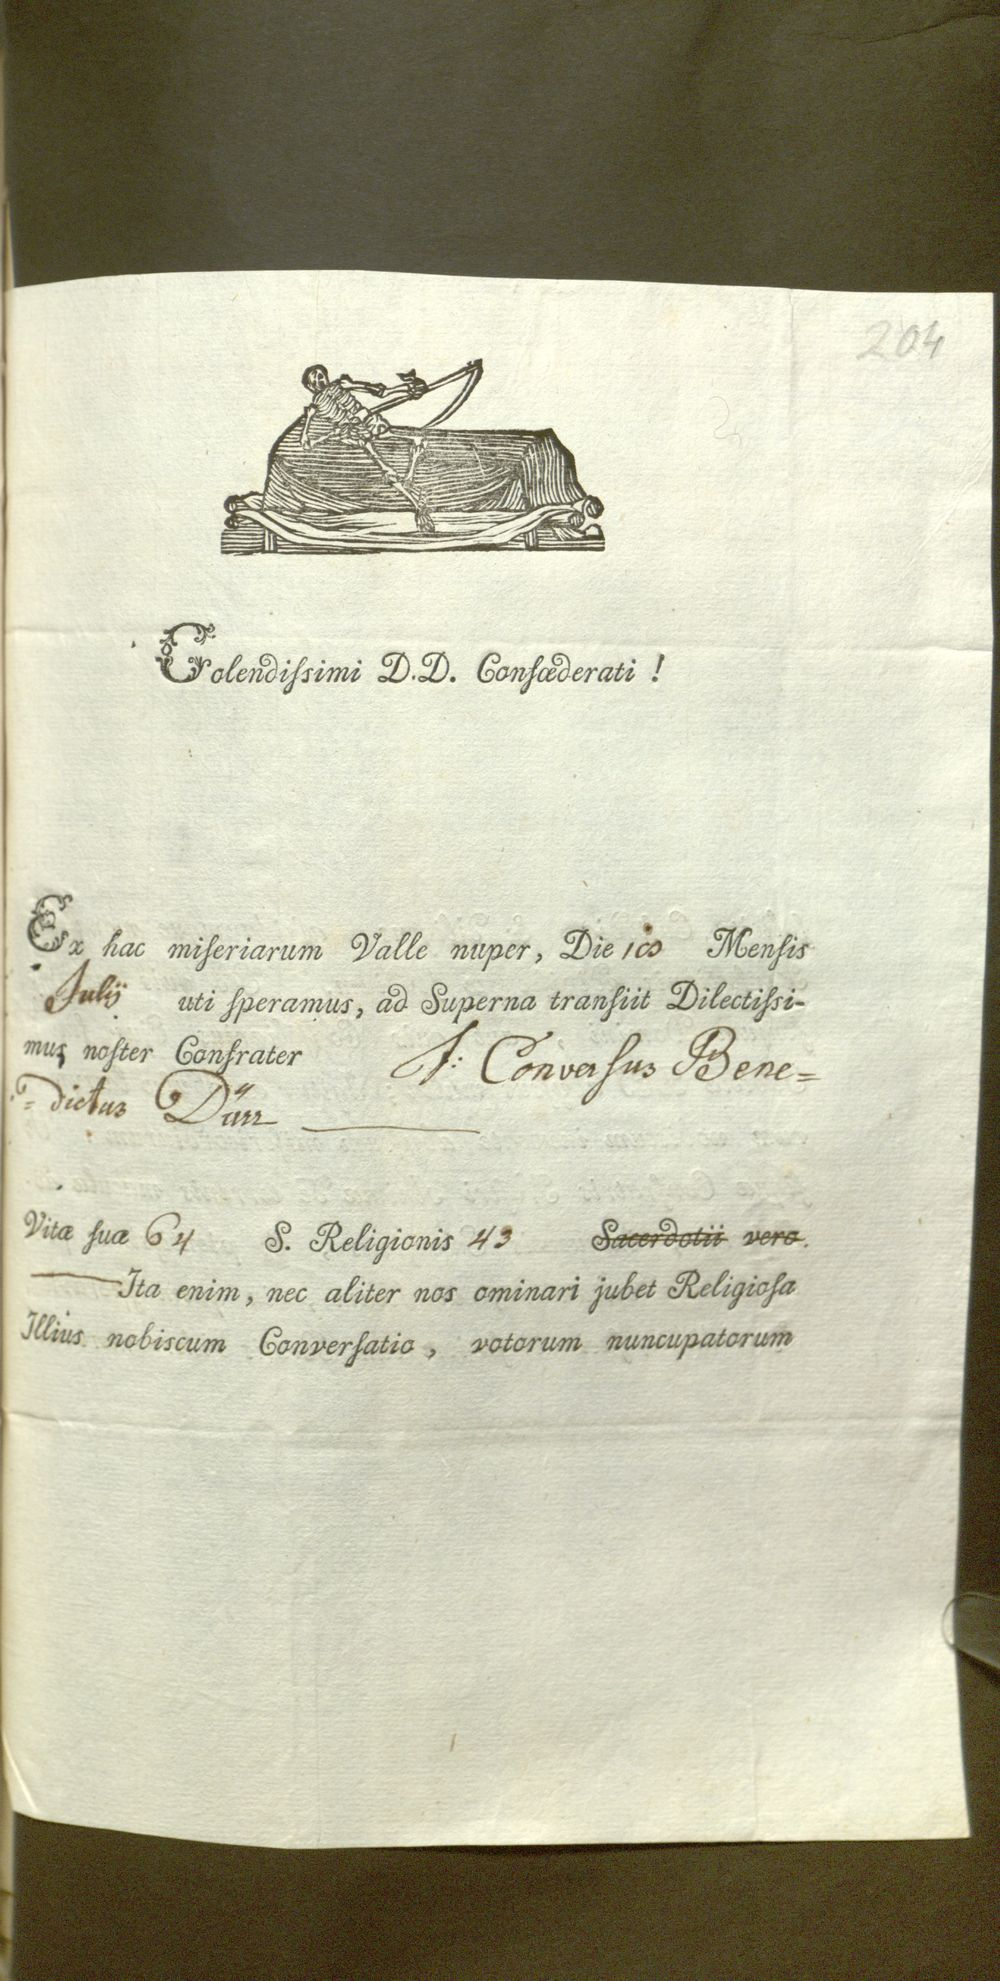 204
Colendiſsimi D.D. Confœderati!
Ex hac miſeriarum Valle nuper, Die Menſis
Julij uti ſperamus, ad Superna tranſiit Dilectiſsi-
mus noſter Confrater F: Converſus Bene=
=dictus Dürr
Vitæ ſuæ 64 S. Religionis 43 Sacerdotii vero.
Ita enim, nec aliter nos ominari jubet Religioſa
Illius nobiscum Converſatio, votorum nuncupatorum